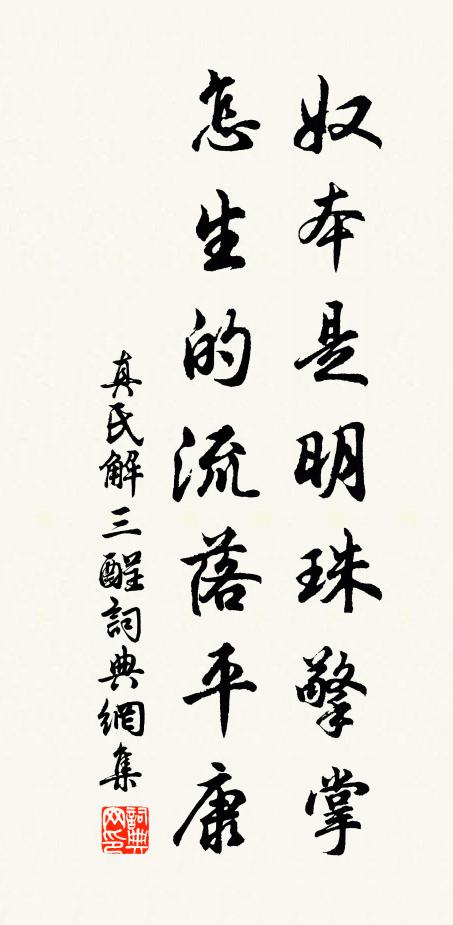 奴本是明珠擎掌
怎生的流落平康
真氏解三酲詞典網集
詞典網印